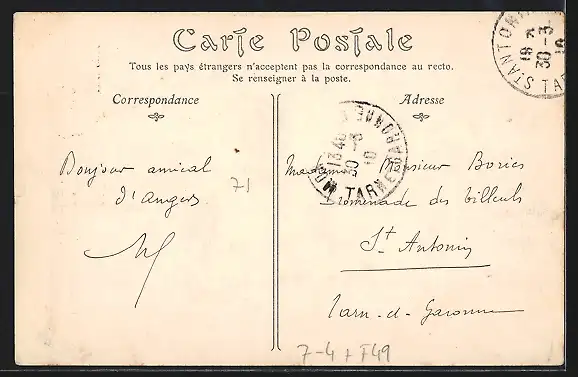 Carte Postale
Tous les pays étrangers n'acceptent pas la correspondance au recto.
Se renseigner à la poste.
Correspondance
Adresse
Bonjour amical
d'Angers
71
Monsieur Bories
Promenade des tilleuls
St Antonin
Tarn-et-Garonne
7-4 + F49
ST ANTONIN
19
30-3
TAR
13 40
30-3
10
TARN
GARONNE